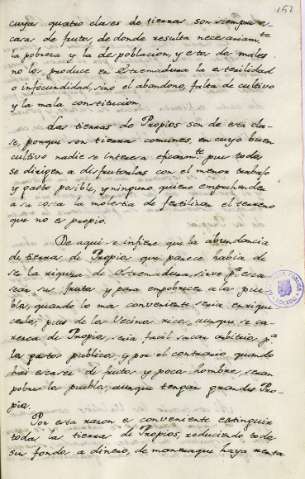 151
cuyas quatro clases de tierras son siempre es-
casas de frutos, de donde resulta necesariamte
la pobreza y la despoblacion, y estos males
no los produce en Estremadura la esterilidad
o infecundidad, sino el abandono, falta de cultivo
y la mala constitucion.
Las tierras de Propios son de esa cla-
se, porque son tierras comunes, en cuyo buen
cultivo nadie se interesa eficazmte pues todos
se dirigen a disfrutarlas con el menos trabajo
y gasto posible, y ninguno quiere emprehender
a su costa la molestia de fertilizar el terreno
que no es propio.
De aqui se infiere que la abundancia
de tierras de Propios que parece habia de
ser la riqueza de Estremadura, sirve pa esca-
sear sus frutos y para empobrecer a los pue-
blos, quando lo mas conveniente seria enrique-
cerlos, pues los Vecinos ricos, aunque se ca-
rezca de Propios, seria facil sacar arbitrios pa
los gastos publicos, y por el contrario, quando
hai escasez de frutos y pocos hombres seran
pobres los pueblos, aunque tengan grandes Pro-
pios.
Por esta razon es conveniente extinguir
todas las tierras de Propios, reduciendo todo
su fondo a dinero, de manera que haya renta